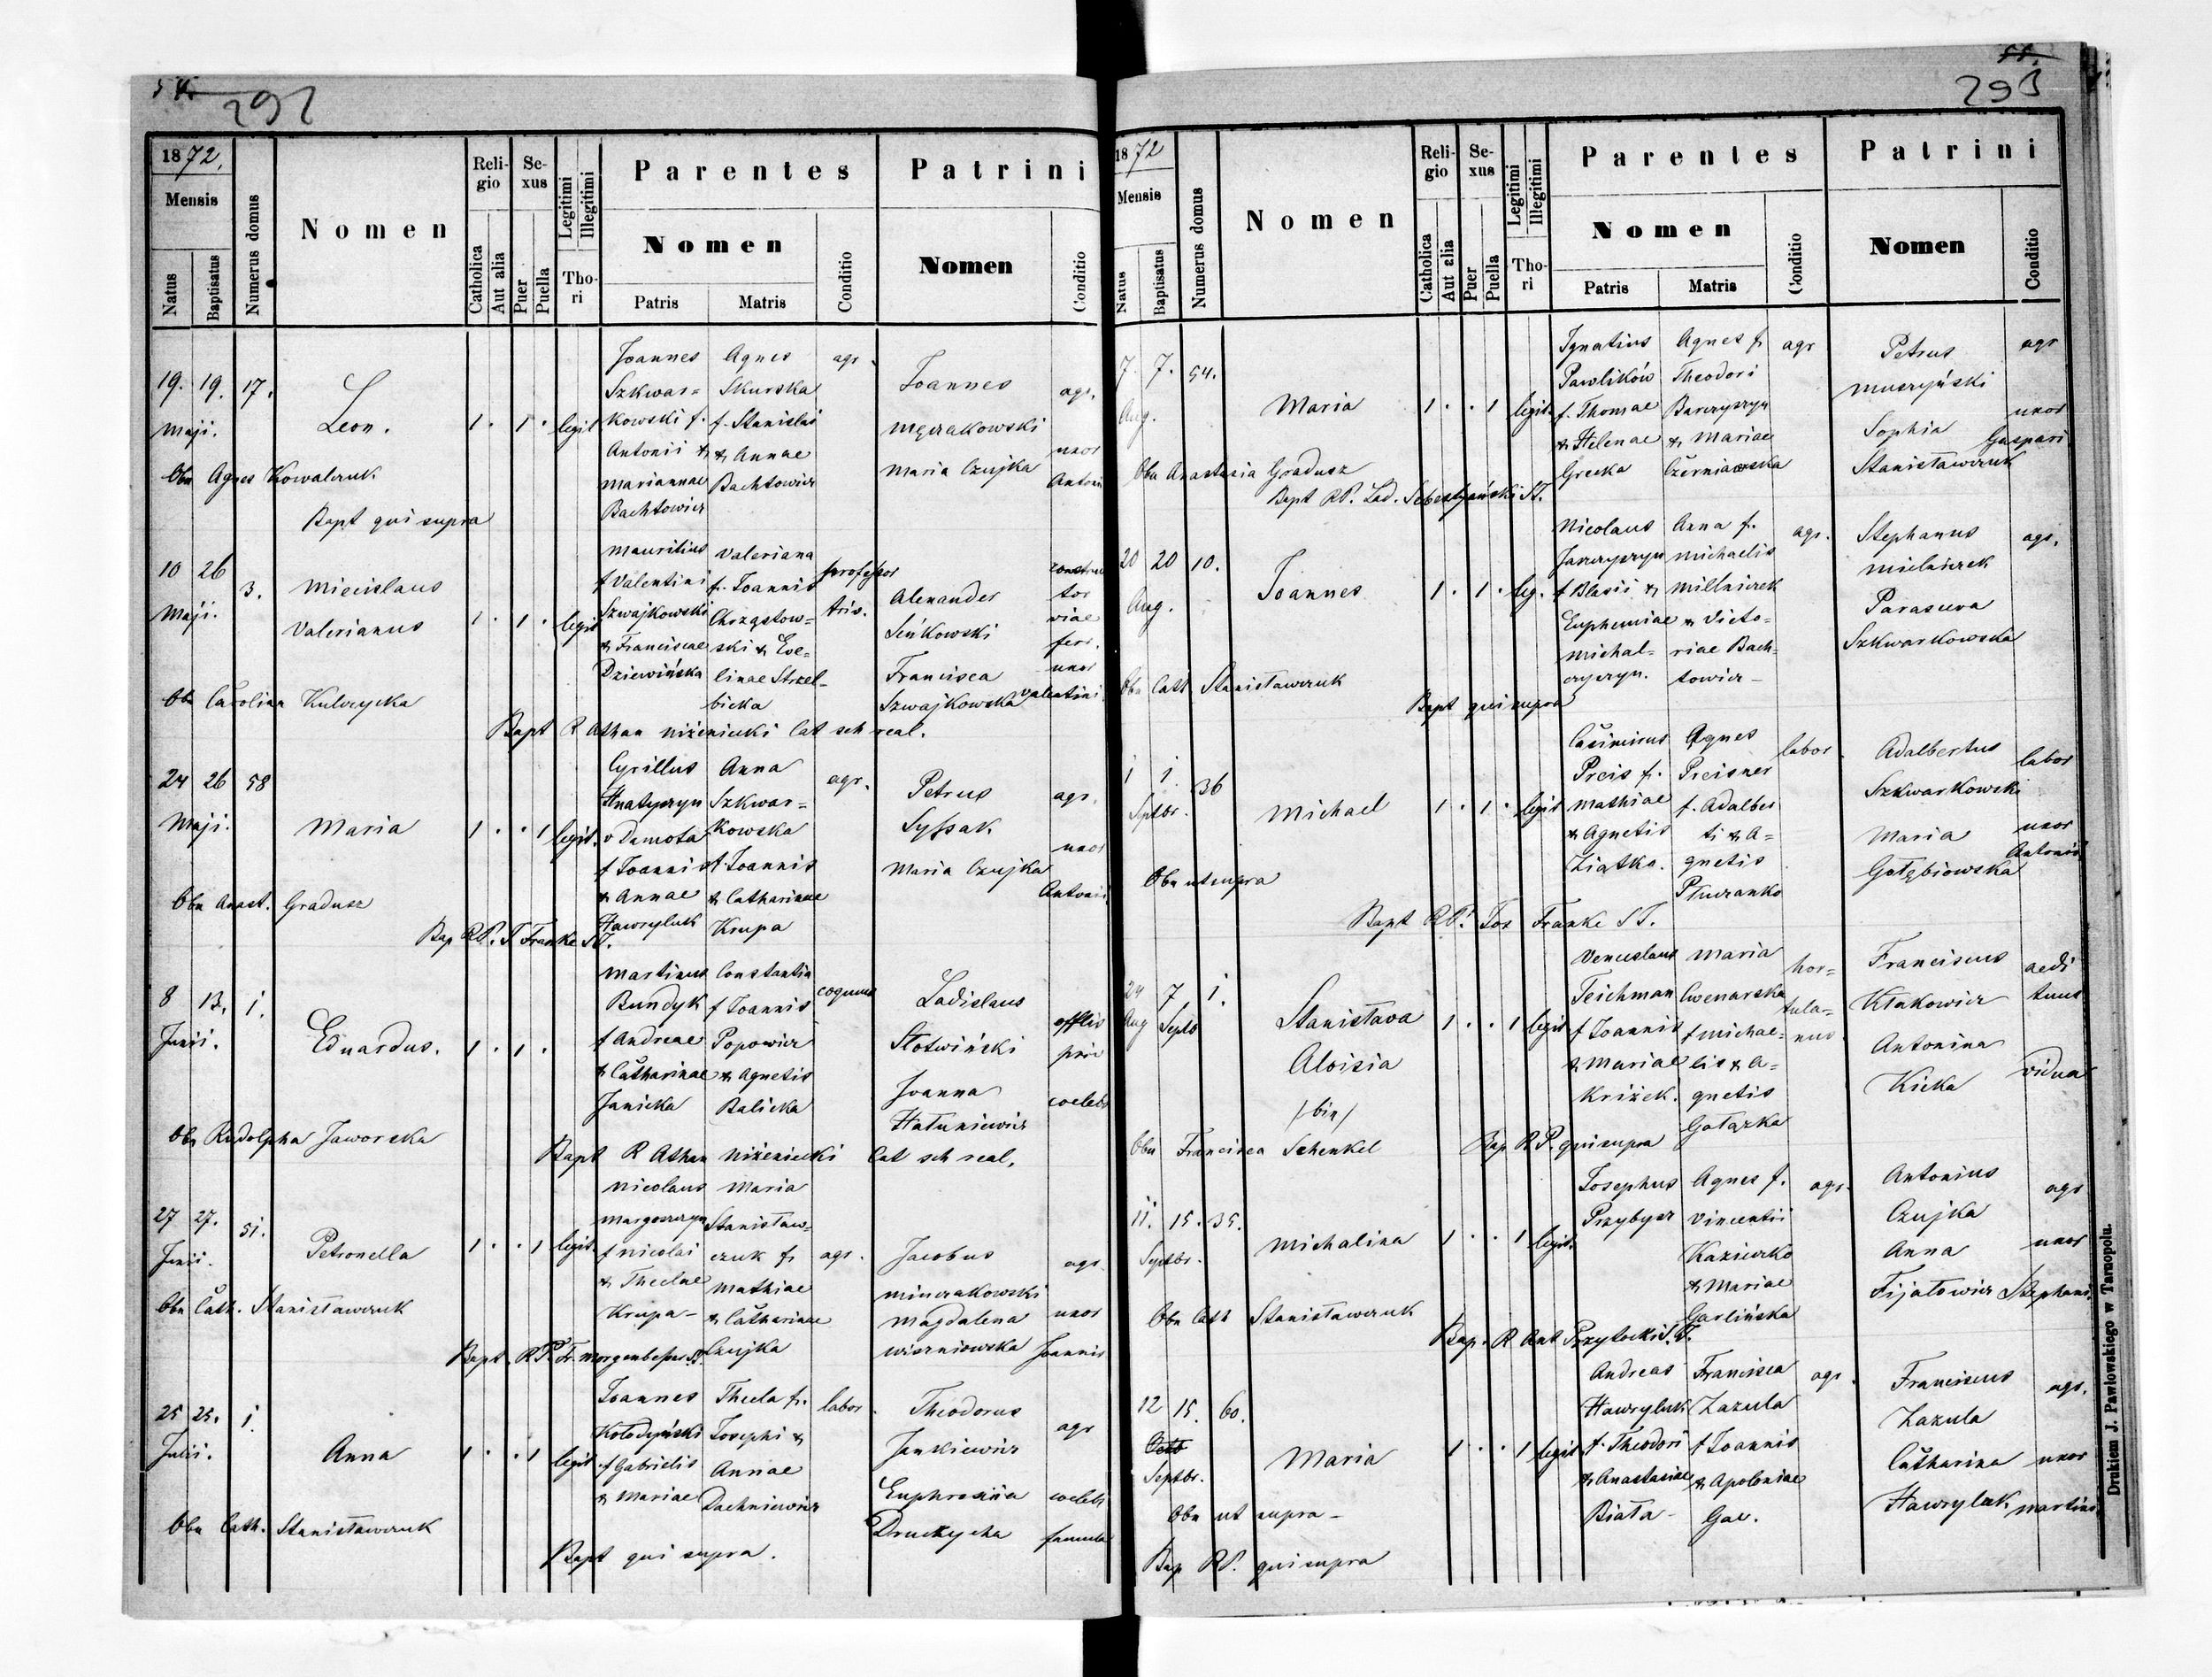 292
1872.
Mensis
Natus
Baptisatus
Numerus domus
Nomen
Religio
Catholica
Aut alia
Sexus
Puer
Puella
Legitimi
Illegitimi
Thori
Parentes
Nomen
Patris
Matris
Conditio
Patrini
Nomen
Conditio
19. 19. 17.
Maji.
Leon.
1 . 1 . legit
Joannes
Szkwar=
kowski f.
Antonii &
Mariannae
Bachtowicz
Agnes
Skurska
f. Stanislai
& Annae
Bachtowicz
agr.
Joannes
Męczakowski
Maria Czujka
agr.
uxor
Antonii
Obs Agnes Kowalczuk
Bapt qui supra
10 26 3.
Maji.
Miecislaus
Valerianus
1 . 1 . legit
Mauritius
f Valentini
Szwajkowski
& Franciscae
Dziewińska
Valeriana
f. Joannis
Chrząstow=
ski & Eve=
linae Strzel-
bicka
professor
tris.
Alexander
Sieńkowski
Francisca
Szwajkowska
tor
viae
ferr.
uxor
Valentini
Obs Carolina Kulczycka
Bapt R Athan Niżeniecki Cat sch real.
24 26 58
Maji.
Maria
1 . . 1 legit.
Cyrillus
Hnatyszyn
v Damota
f Joannis
& Annae
Hawryluk
Anna
Szkwar=
kowska
f. Joannis
& Catharinae
Krupa
agr.
Petrus
Syssak
Maria Czujka
agr.
uxor
Antonii
Obs Anast. Gradusz
Bap RP. J Franke S.J.
8 13. 1.
Junii.
Eduardus.
1 . 1 .
Martinus
Bundyk
f Andreae
& Catharinae
Janicka
Constantia
f Joannis
Popowicz
& Agnetis
Balicka
coquus
Ladislaus
Słotwiński
Joanna
Hatuniewicz
offlis
priv
coelebs
Obs Rudolpha Jaworska
Bapt R Athan Niżeniecki Cat sch real.
27 27. 51.
Junii.
Petronella
1 . . 1 legit
Nicolaus
Margoszczyn
f Nicolai
& Theclae
Krupa-
Maria
Stanisław=
czuk f.
Mathiae
& Catharinae
Czujka
agr.
Jacobus
Minczakowski
Magdalena
Wiszniowska
agr.
uxor
Joannis
Obs Cath. Stanisławczuk
Bapt. R.P. Fr. Morgenbesser S.J.
25 25. 1.
Julii.
Anna
1 . . 1 legit
Joannes
Kołodyński
f Gabrielis
& Mariae
Thecla f.
Josephi &
Annae
Dachniewicz
labor.
Theodorus
Jankiewicz
Euphrosina
Druczycha
agr
coelebs
famula
Obs Cath. Stanisławczuk
Bapt qui supra.
293
1872
Mensis
Natus
Baptisatus
Numerus domus
Nomen
Religio
Catholica
Aut alia
Sexus
Puer
Puella
Legitimi
Illegitimi
Thori
Parentes
Nomen
Patris
Matris
Conditio
Patrini
Nomen
Conditio
7. 7. 54.
Aug.
Maria
1 . . 1 legit.
Ignatius
Pawlików
f. Thomae
& Helenae
Grecka
Agnes f.
Theodori
Barczyszyn
& Mariae
Czerniawska
agr
Petrus
Muszyński
Sophia
Stanisławczuk
agr
uxor
Gaspari
Obs Anastasia Gradusz
Bapt RP. Lad. Sebestyański S.J.
20 20 10.
Aug.
Joannes
1 . 1 . leg.
Nicolaus
Jarczyszyn
f Blasii &
Euphemiae
Michal=
czyszyn.
Anna f.
Michaelis
Millniczek
& Victo=
riae Bach=
towicz-
agr.
Stephanus
Mielniczek
Parasceva
Szkwarkowska
agr.
Obs Cath Stanisławczuk
Bapt qui supra
1 1 36
Septbr.
Michael
1 . 1 . legit
Casimirus
Preis f.
Mathiae
& Agnetis
Ziątko.
Agnes
Preisner
f. Adalber
ti & A=
gnetis
Płuczanko
labor
Adalbertus
Szkwarkowski
Maria
Gołębiowska
labor
uxor
Antonii
Obs ut supra
Bapt R.P. Jos Franke S.J.
24 7 1.
Aug Septb
Stanisłava
Aloisia
/bin/
1 . . 1 legit
Venceslaus
Teichman
f Joannis
& Mariae
Križek.
Maria
Cwenarska
f Michae=
lis & A=
gnetis
Gałązka
hor=
tula=
nus
Franciscus
Kłakowicz
Antonina
Kicka
aedi
tuus
vidua
Obs Francisca Schenkel
Bap R P. qui supra
11. 15. 35.
Septbr.
Michalina
1 . . 1 legit.
Josephus
Przybysz
Agnes f.
Vincentii
Kaziuczko
& Mariae
Garlińska
agr.
Antonius
Czujka
Anna
Fijałowicz
agr
uxor
Stephani.
Obs Cath Stanisławczuk
Bap. R Ant Przyłocki S.J.
12 15. 60.
Septbr.
Maria
1 . . 1 legit
Andreas
Hawryluk
f. Theodori
& Anastasiae
Biała-
Francisca
Zazula
f Joannis
& Apoloniae
Gac.
agr.
Franciscus
Zazula
Catharina
Hawryluk
agr.
uxor
Martini
Obs ut supra-
Bap RP. qui supra
Drukiem J. Pawłowskiego w Tarnopolu.